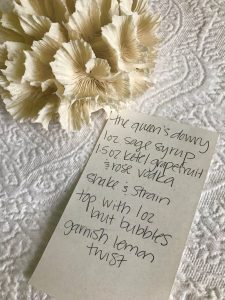 the queen's dowry
1oz sage syrup
1.5oz ketel grapefruit
& rose vodka
shake & strain
top with 1oz
brut bubbles
garnish lemon
twist